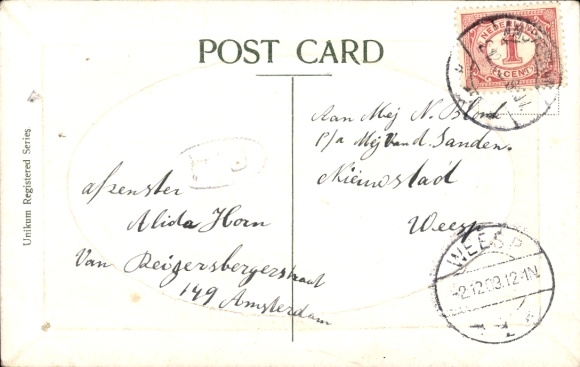 POST CARD
NEDERLAND
1
CENT
Unikum Registered Series
Aan Mej N. Blonk
p/a Mej van d. Sanden.
Nieuwstad
Weesp
afzenster
Alida Horn
Van Reigersbergerstraat
149 Amsterdam
WEESP
2.12.09.12-1N